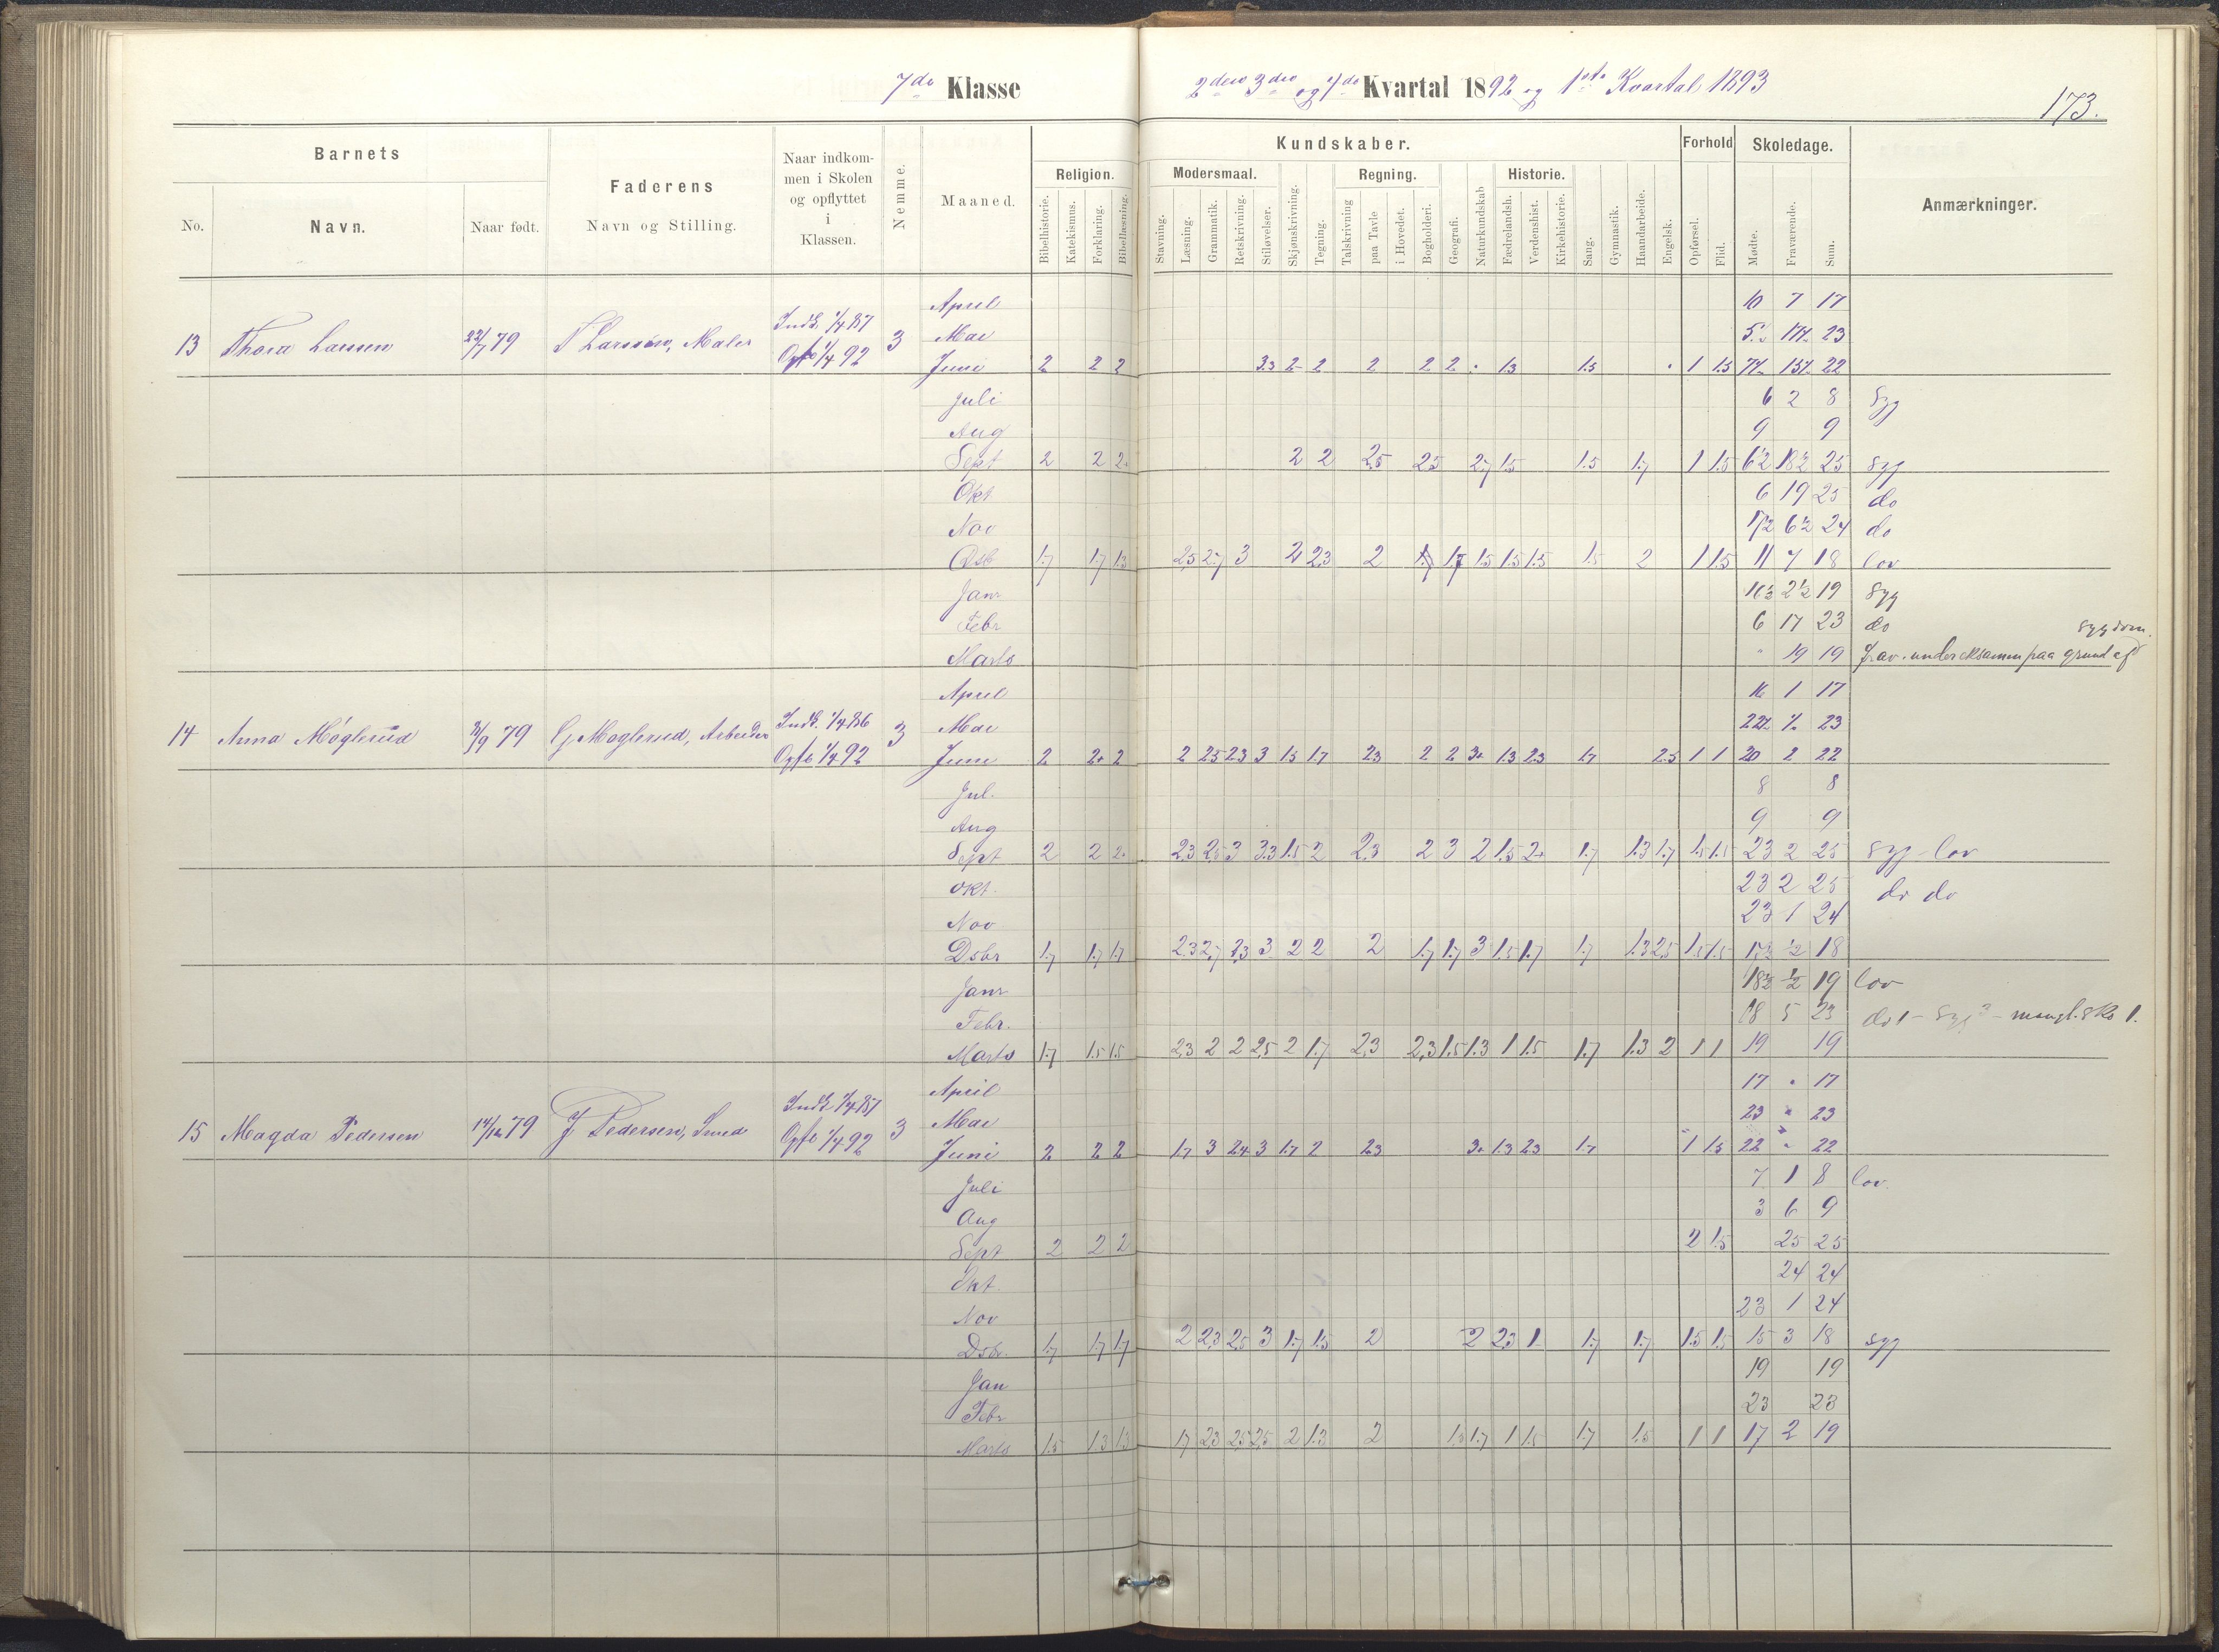 7de Klasse
2det 3die og 4de Kvartal 1892 og 1ste Kvartal 1893
173.
Barnets
No.
Navn.
Naar født.
Faderens
Navn og Stilling.
Naar indkom-
men i Skolen
og opflyttet
i
Klassen.
Nemme.
Maaned.
Kundskaber.
Religion.
Bibelhistorie.
Katekismus.
Forklaring.
Bibellæsning.
Modersmaal.
Stavning.
Læsning.
Grammatik.
Retskrivning.
Stiløvelser.
Skjønskrivning.
Tegning.
Regning.
Talskrivning
paa Tavle
i Hovedet.
Bogholderi.
Geografi.
Naturkundskab
Historie.
Fædrelandsh.
Verdenshist.
Kirkehistorie.
Sang.
Gymnastik.
Haandarbeide.
Engelsk.
Forhold
Opførsel.
Flid.
Skoledage.
Mødte.
Fraværende.
Sum.
Anmærkninger.
April 10 7 17
13 Thora Larsen 22/7 79 T Larssen, Maler Indk. 1/4 87 Opfl 1/4 92 3
Mai 23
Juni 2 2 2 3.3 2 2 2 2 2 1.3 1.5 1 1.5 22
Juli 6 2 8 Syg
Aug 9 9
Sept 2 2 2 2 2 2.5 2.5 2.7 1.5 1.5 1.7 1 1.5 6½ 18½ 25 Syg
Okt 6 19 25 do
Nov 17½ 6½ 24 do
Dsb 1.7 1.7 1.3 2.5 2.7 3 2 2.3 2 1.7 1.7 1.5 1.5 1.5 1.5 2 1 1.5 11 7 18 lov
Janr 16½ 2½ 19 Syg
Febr 6 17 23 do
Marts " 19 19 frav. under eksamen paa grund af sygdom.
April 16 1 17
14 Anna Møglerud 79 G Moglerud, Arbeider Indk. 1/4 86 Opfl 1/4 92 3
Mai 22½ ½ 23
Juni 2 2+ 2 2 2.5 2.3 3 1.5 1.7 2.3 2 2 3+ 1.3 2.3 1.7 2.5 1 1 20 2 22
Jul. 8 8
Aug 9 9
Sept 2 2 2+ 2.3 2.5 3 3.3 1.5 2 2.3 2 3 2 1.5 2+ 1.7 1.3 1.7 1.5 1.5 23 2 25 Syg - lov
Okt. 23 2 25 do do
Nov 23 1 24
Dsbr 1.7 1.7 1.7 2.3 2.7 2.3 3 2 2 2 1.7 1.7 3 1.5 1.7 1.7 1.3 2.5 1.5 1.5 17½ ½ 18
Janr 18½ ½ 19 lov
Febr. 18 5 23 do 1 - Syg 3 - mangl. sko 1.
Marts 1.7 1.5 1.5 2.3 2 2 2.5 2 1.7 2.3 2.3 1.5 1.3 1 1.5 1.7 1.3 2 1 1 19 19
April 17 " 17
15 Magda Pedersen 14/12 79 J Pedersen, Smed Indk 1/4 87 Opfl 1/4 92 3
Mai 23 " 23
Juni 2 2 2 1.7 3 2.4 3 1.7 2 2.3 3+ 1.3 2.3 1.7 1 1.5 22 " 22
Juli 7 1 8 lov.
Aug 3 6 9
Sept 2 2 2 2 1.5 25 25
Okt. 24 24
Nov 23 1 24
Dsbr. 1.7 1.7 1.7 2 2.3 2.5 3 1.7 1.5 2 2 2.3 1 1.7 1.7 1.5 1.5 15 3 18 syg
Jan 19 19
Febr 23 23
Marts 1.5 1.3 1.3 1.7 2.3 2.5 2.5 2 1.3 2 1.5 1.7 1 1.5 1.7 1.5 1 1 17 2 19